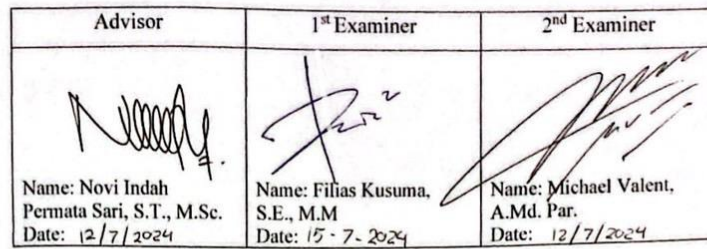 Advisor
1st Examiner
2nd Examiner
Name: Novi Indah
Permata Sari, S.T., M.Sc.
Date: 12/7/2024
Name: Filias Kusuma,
S.E., M.M
Date: 15-7-2024
Name: Michael Valent,
A.Md. Par.
Date: 12/7/2024